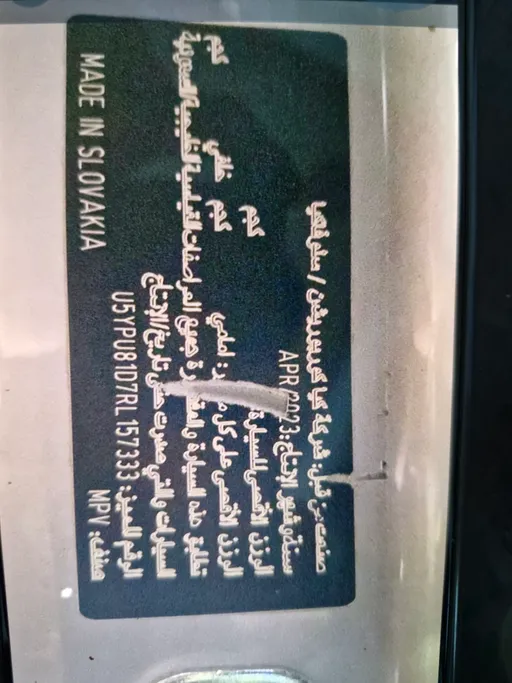 صنعت من قبل: شركة كيا كوربوريشن / سلوفاكيا
سنة و شهر الإنتاج: APR 2023
الوزن الأقصى للسيارة كجم
الوزن الأقصى على كل محور: امامي كجم خلفي كجم
تطابق هذه السيارة و المقطورة جميع المواصفات القياسية الخليجية/السعودية
السيارات والتي صدرت حتى تاريخ/الإنتاج
الرقم المميز: U5YPU81D7RL157333
صنف: MPV
MADE IN SLOVAKIA